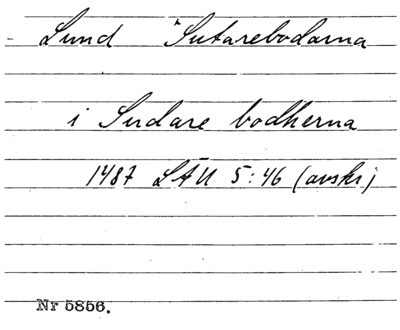 Lund *Sutarebodarna
i Sudare bodherna
1487 LÄU 5:46 (avskr)
Nr 5856.